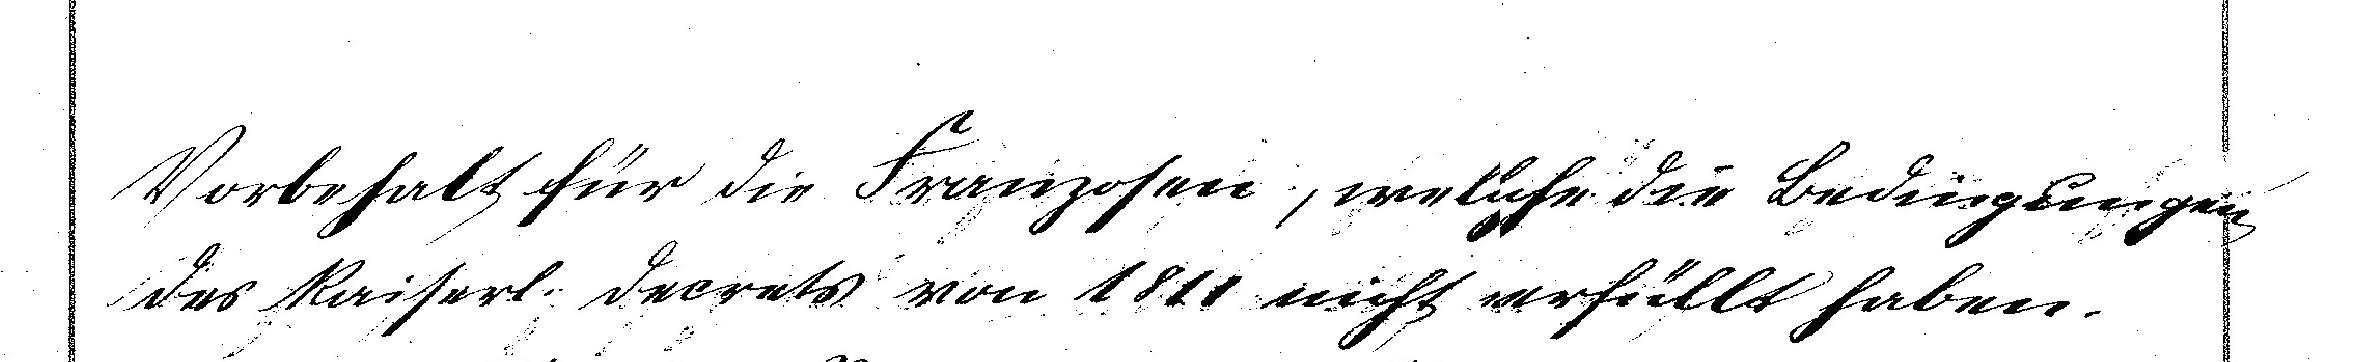 Vorbehalt für die Franzosen, welche die Bedingungen
des Kaiserl. Decrets von 1811 nicht erfüllt haben.